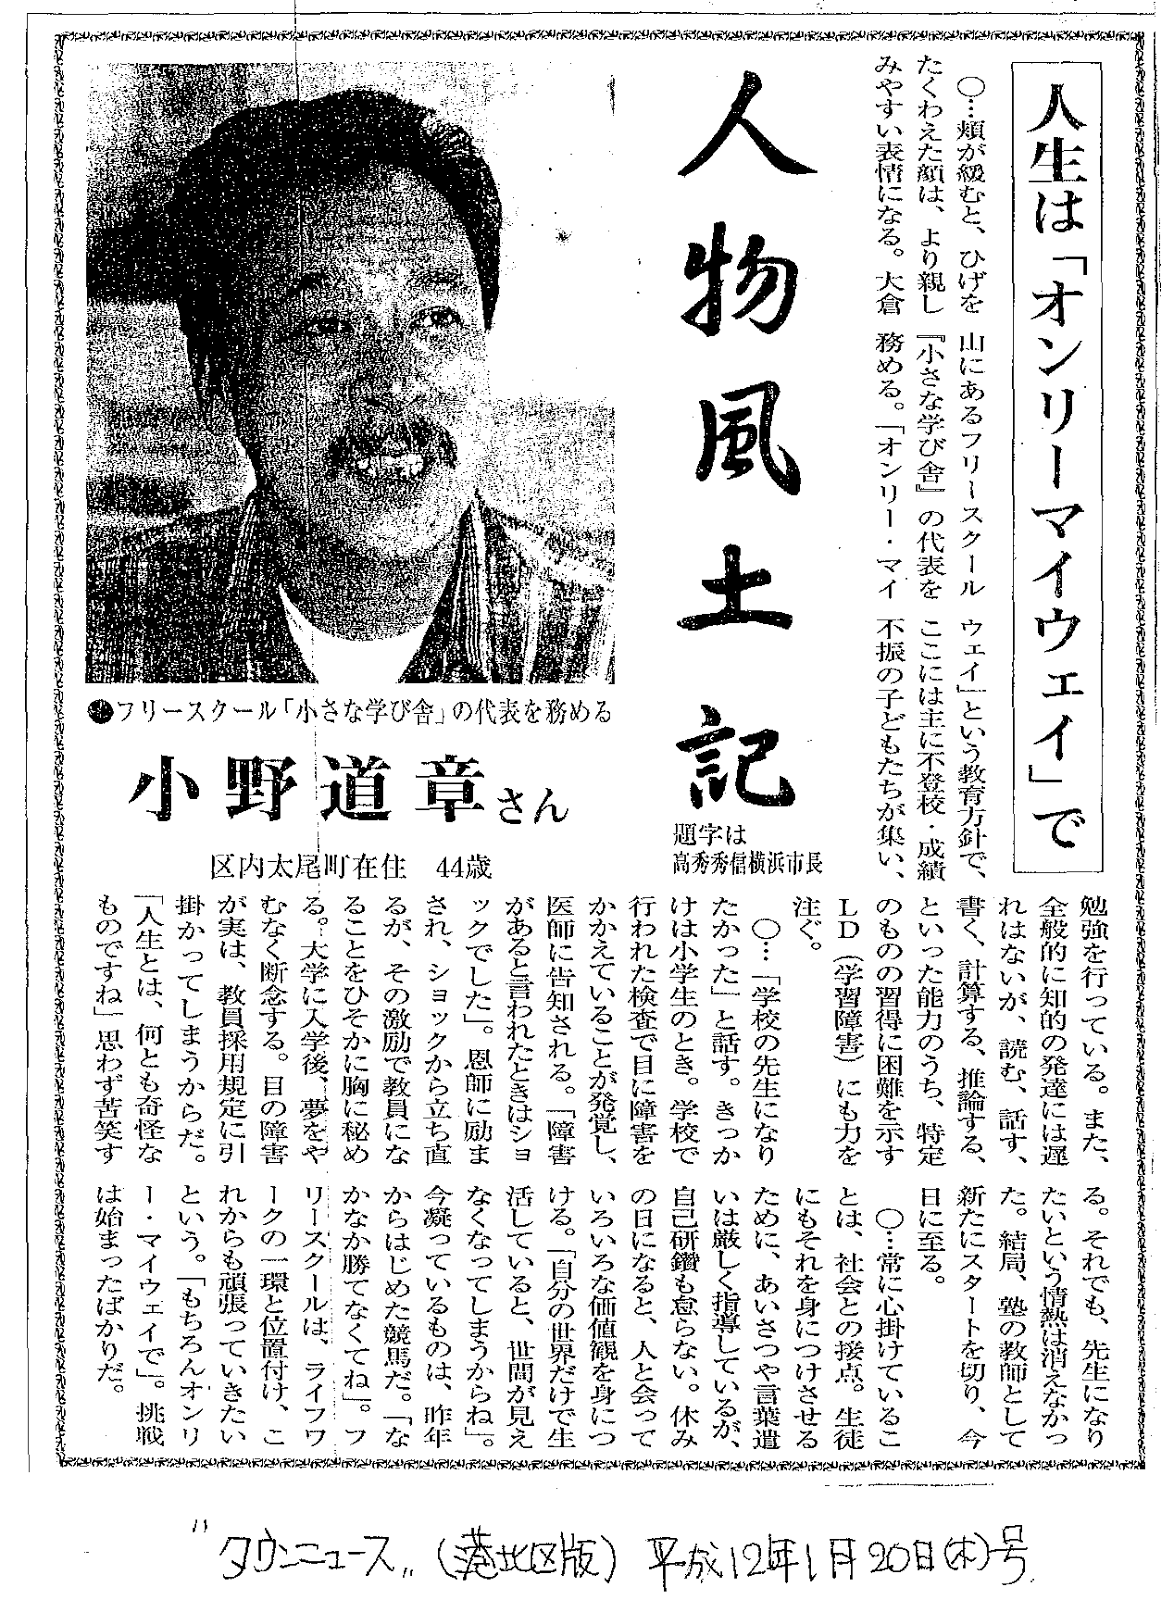 人生は「オンリーマイウェイ」で
人物風土記
題字は
高秀秀信横浜市長
●フリースクール「小さな学び舎」の代表を務める
小野道章さん
区内太尾町在住　44歳
○…頬が緩むと、ひげを
たくわえた顔は、より親し
みやすい表情になる。大倉
山にあるフリースクール
『小さな学び舎』の代表を
務める。「オンリー・マイ
ウェイ」という教育方針で、
ここには主に不登校・成績
不振の子どもたちが集い、
勉強を行っている。また、
全般的に知的の発達には遅
れはないが、読む、話す、
書く、計算する、推論する、
といった能力のうち、特定
のものの習得に困難を示す
ＬＤ（学習障害）にも力を
注ぐ。
○…「学校の先生になり
たかった」と話す。きっか
けは小学生のとき。学校で
行われた検査で目に障害を
かかえていることが発覚し、
医師に告知される。「障害
があると言われたときはショ
ックでした」。恩師に励ま
され、ショックから立ち直
るが、その激励で教員にな
ることをひそかに胸に秘め
る。大学に入学後、夢をや
むなく断念する。目の障害
が実は、教員採用規定に引
掛かってしまうからだ。
「人生とは、何とも奇怪な
ものですね」思わず苦笑す
る。それでも、先生になり
たいという情熱は消えなかっ
た。結局、塾の教師として
新たにスタートを切り、今
日に至る。
○…常に心掛けているこ
とは、社会との接点。生徒
にもそれを身につけさせる
ために、あいさつや言葉遣
いは厳しく指導しているが、
自己研鑽も怠らない。休み
の日になると、人と会って
いろいろな価値観を身につ
ける。「自分の世界だけで生
活していると、世間が見え
なくなってしまうからね」。
今凝っているものは、昨年
からはじめた競馬だ。「な
かなか勝てなくてね」。フ
リースクールは、ライフワ
ークの一環と位置付け、こ
れからも頑張っていきたい
という。「もちろんオンリ
ー・マイウェイで」。挑戦
は始まったばかりだ。
"タウンニュース"（港北区版）平成12年1月20日(木)号